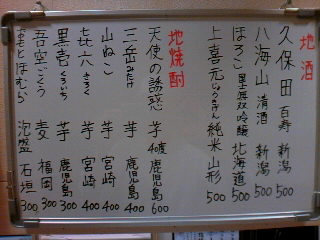 地酒
久保田 百寿 新潟 500
八海山 清酒 新潟 500
ほろこ 里無双吟醸 北海道 500
上喜元 じょうきげん 純米 山形 500
地焼酎
天使の誘惑 芋 40度 鹿児島 600
三岳 みたけ 芋 鹿児島 400
山ねこ 芋 宮崎 400
㐂六 きろく 芋 宮崎 400
黒壱 くろいち 芋 鹿児島 300
吾空 ごくう 麦 福岡 300
おもとほむら 泡盛 石垣 300